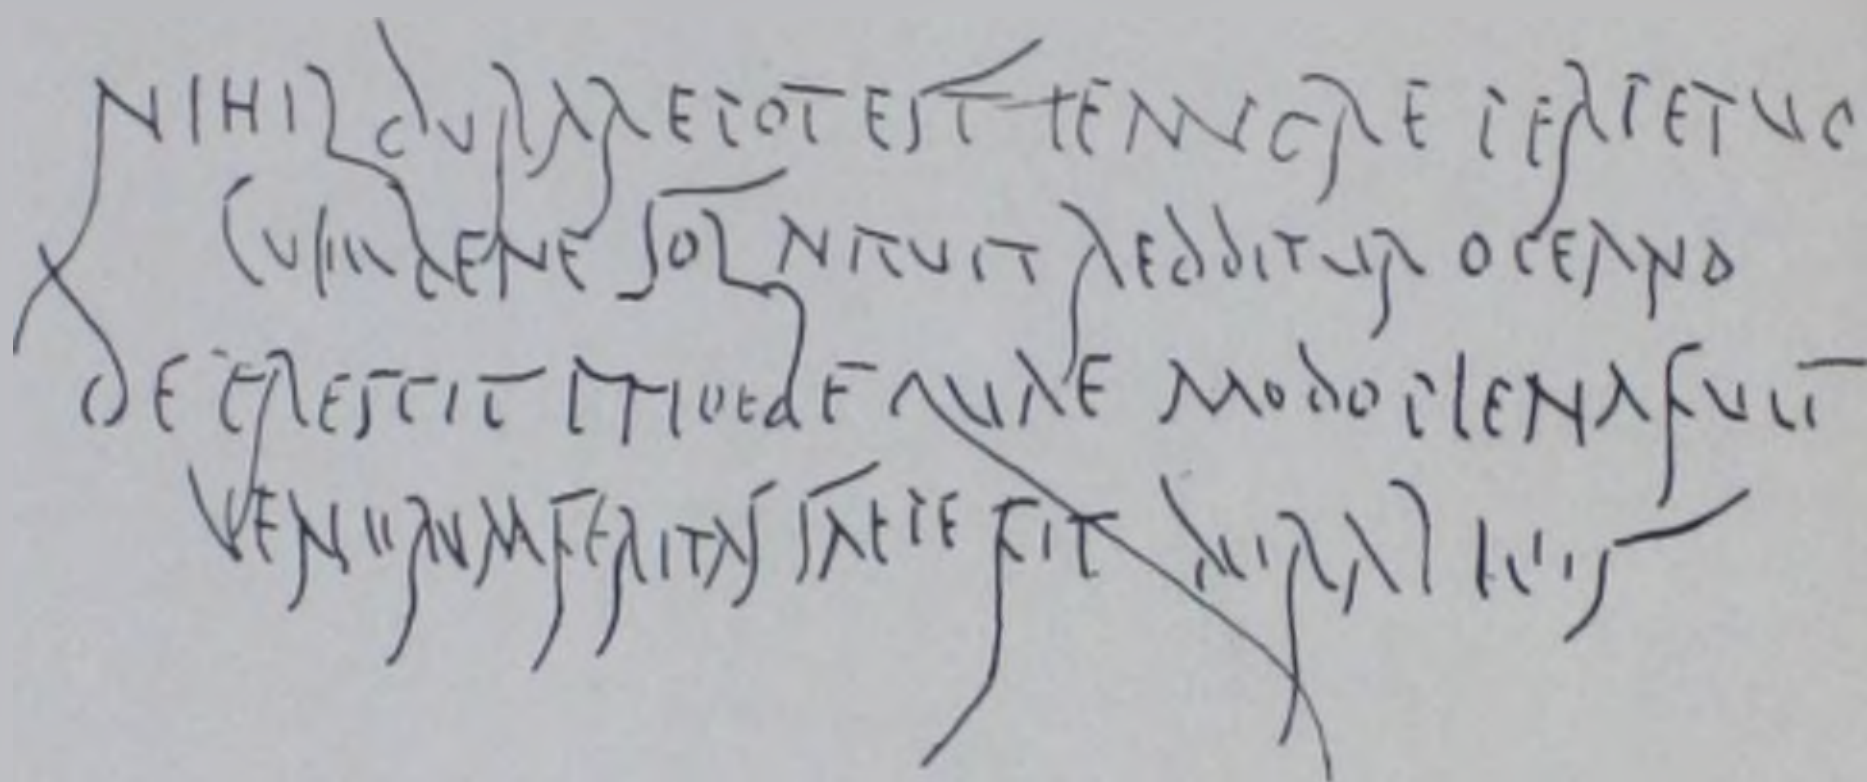 NIHIL DVRARE POTEST TEMPORE PERPETVO
CVM BENE SOL NITVIT REDDITVR OCEANO
DECRESCIT PHOEBE QVAE MODO PLENA FVIT
VENERVM FERITAS SAEPE FIT AVRA LEVIS